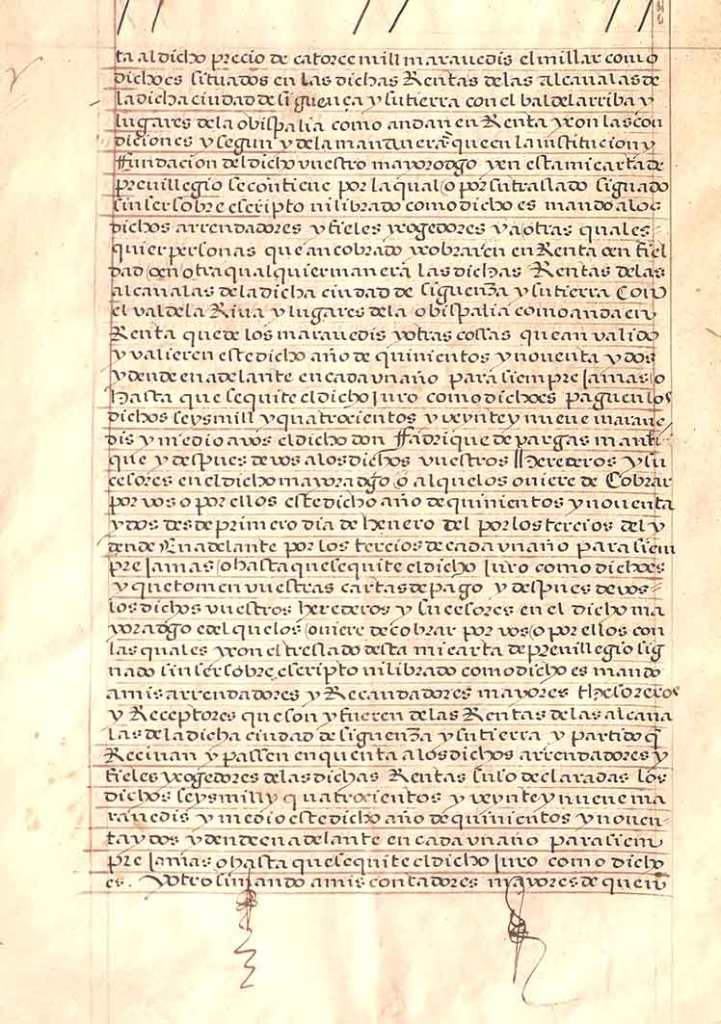 ta al dicho precio de catorce mill maravedis el millar como
dicho es situados en las dichas Rentas de las alcavalas de
la dicha ciudad de siguença y su tierra con el bal de larriba y
lugares de la obispalia como andan en Renta y con las con
diciones y segun y de la man que en la institucion y
ffundacion del dicho vuestro mayoradgo y en esta mi carta de
previllegio se contiene por la qual o por su traslado signado
sin ser sobre escripto ni librado como dicho es mando a los
dichos arrendadores y fieles y cogedores y a otras quales=
quier personas que an cobrado y cobraren en Renta o en fiel
dad o en otra qualquier manera las dichas Rentas de las
alcavalas de la dicha ciudad de siguenza y su tierra Con
el val de la Riva y lugares de la obispalia como anda en
Renta que de los maravedis y otras cossas que an valido
y valieren este dicho año de quinientos y noventa y dos
y dende en adelante en cada un año para siempre Jamas o
Hasta que se quite el dicho Juro como dicho es paguen los
dichos seys mill y quatrocientos y veynte y nueve marave
dis y medio a vos el dicho don ffadrique de vargas manrri
que y despues de vos a los dichos vuestros Herederos y su
cesores en el dicho mayoradgo o al que los oviere de Cobrar
por vos o por ellos este dicho año de quinientos y noventa
y dos desde primero dia de henero del por los tercios del y
dende En adelante por los tercios de cada un año para siem
pre Jamas o hasta que se quite el dicho Juro como dicho es
y que tomen vuestras cartas de pago y despues de vos=
los dichos vuestros herederos y sucesores en el dicho ma
yoradgo e del que los oviere de cobrar por vos o por ellos con
las quales y con el treslado desta mi carta de previllegio sig
nado sin ser sobre escripto ni librado como dicho es mando
a mis arrendadores y Recaudadores mayores thesoreros
y Receptores que son y fueren de las Rentas de las alcava
las de la dicha ciudad de siguenza y su tierra y partido q
Recivan y passen en quenta a los dichos arrendadores y
fieles y cogedores de las dichas Rentas suso declaradas los
dichos seys mill y quatrocientos y veynte y nueve ma
ravedis y medio este dicho año de quinientos y noven
ta y dos y dende en adelante en cada un año para siem
pre Jamas o hasta que se quite el dicho Juro como dicho
es. Y otro si mando a mis contadores mayores de quen